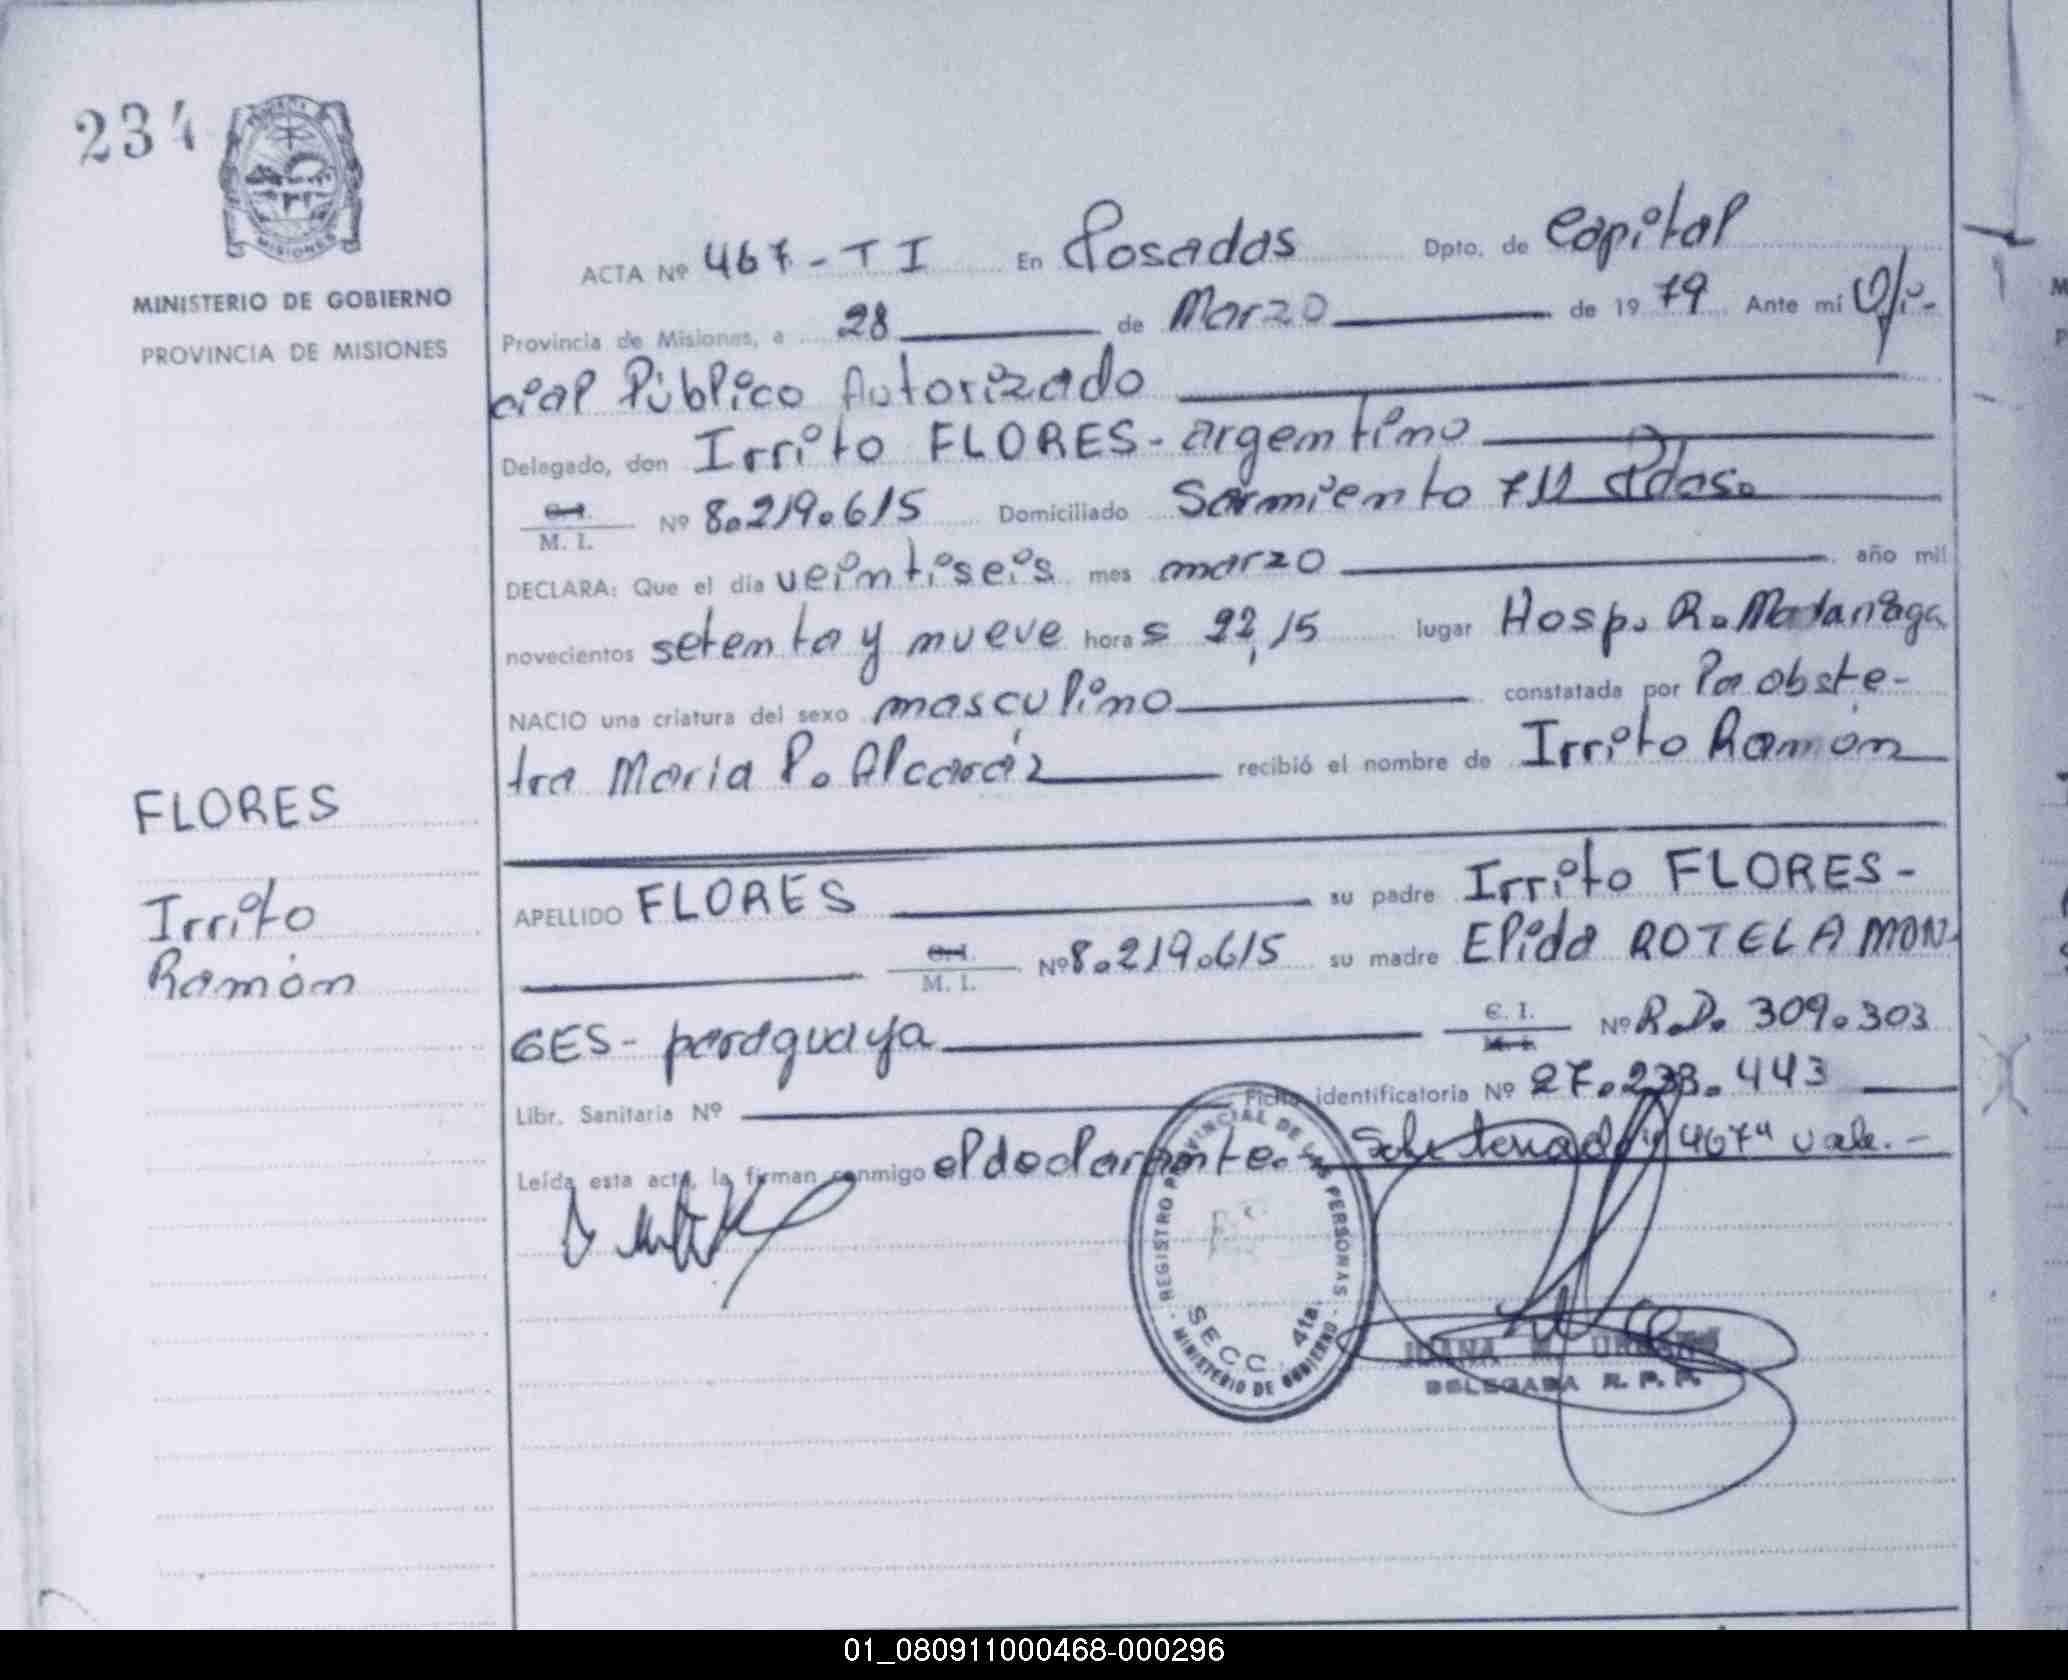 234
MISIONES
MINISTERIO DE GOBIERNO
PROVINCIA DE MISIONES
ACTA Nº 467-TI En Posadas Dpto. de Capital
Provincia de Misiones, a 28 de Marzo de 1979 Ante mí Ofi-
cial Público Autorizado
Delegado, don Irrito FLORES - argentino
C.I.
M. I. Nº 8.219.615 Domiciliado Sarmiento 712 Pdas.
DECLARA: Que el día veintiseis mes marzo año mil
novecientos setenta y nueve horas 22,15 lugar Hosp. R. Madariaga
NACIO una criatura del sexo masculino constatada por la obste-
tra Maria P. Alcaráz recibió el nombre de Irrito Ramón
FLORES
Irrito
Ramón
APELLIDO FLORES su padre Irrito FLORES-
C.I.
M. I. Nº 8.219.615 su madre Elida ROTELA MON-
GES- paraguaya C. I. Nº R.D. 309.303
M. I.
Libr. Sanitaria Nº Ficha identificatoria Nº 27.233.443
Leída esta acta, la firman conmigo el declarante. Sobreborrado "467" vale.-
REGISTRO PROVINCIAL DE LAS PERSONAS
SECC. 4ta.
MINISTERIO DE GOBIERNO
JUANA
DELEGADA R. P. P.
01_080911000468-000296